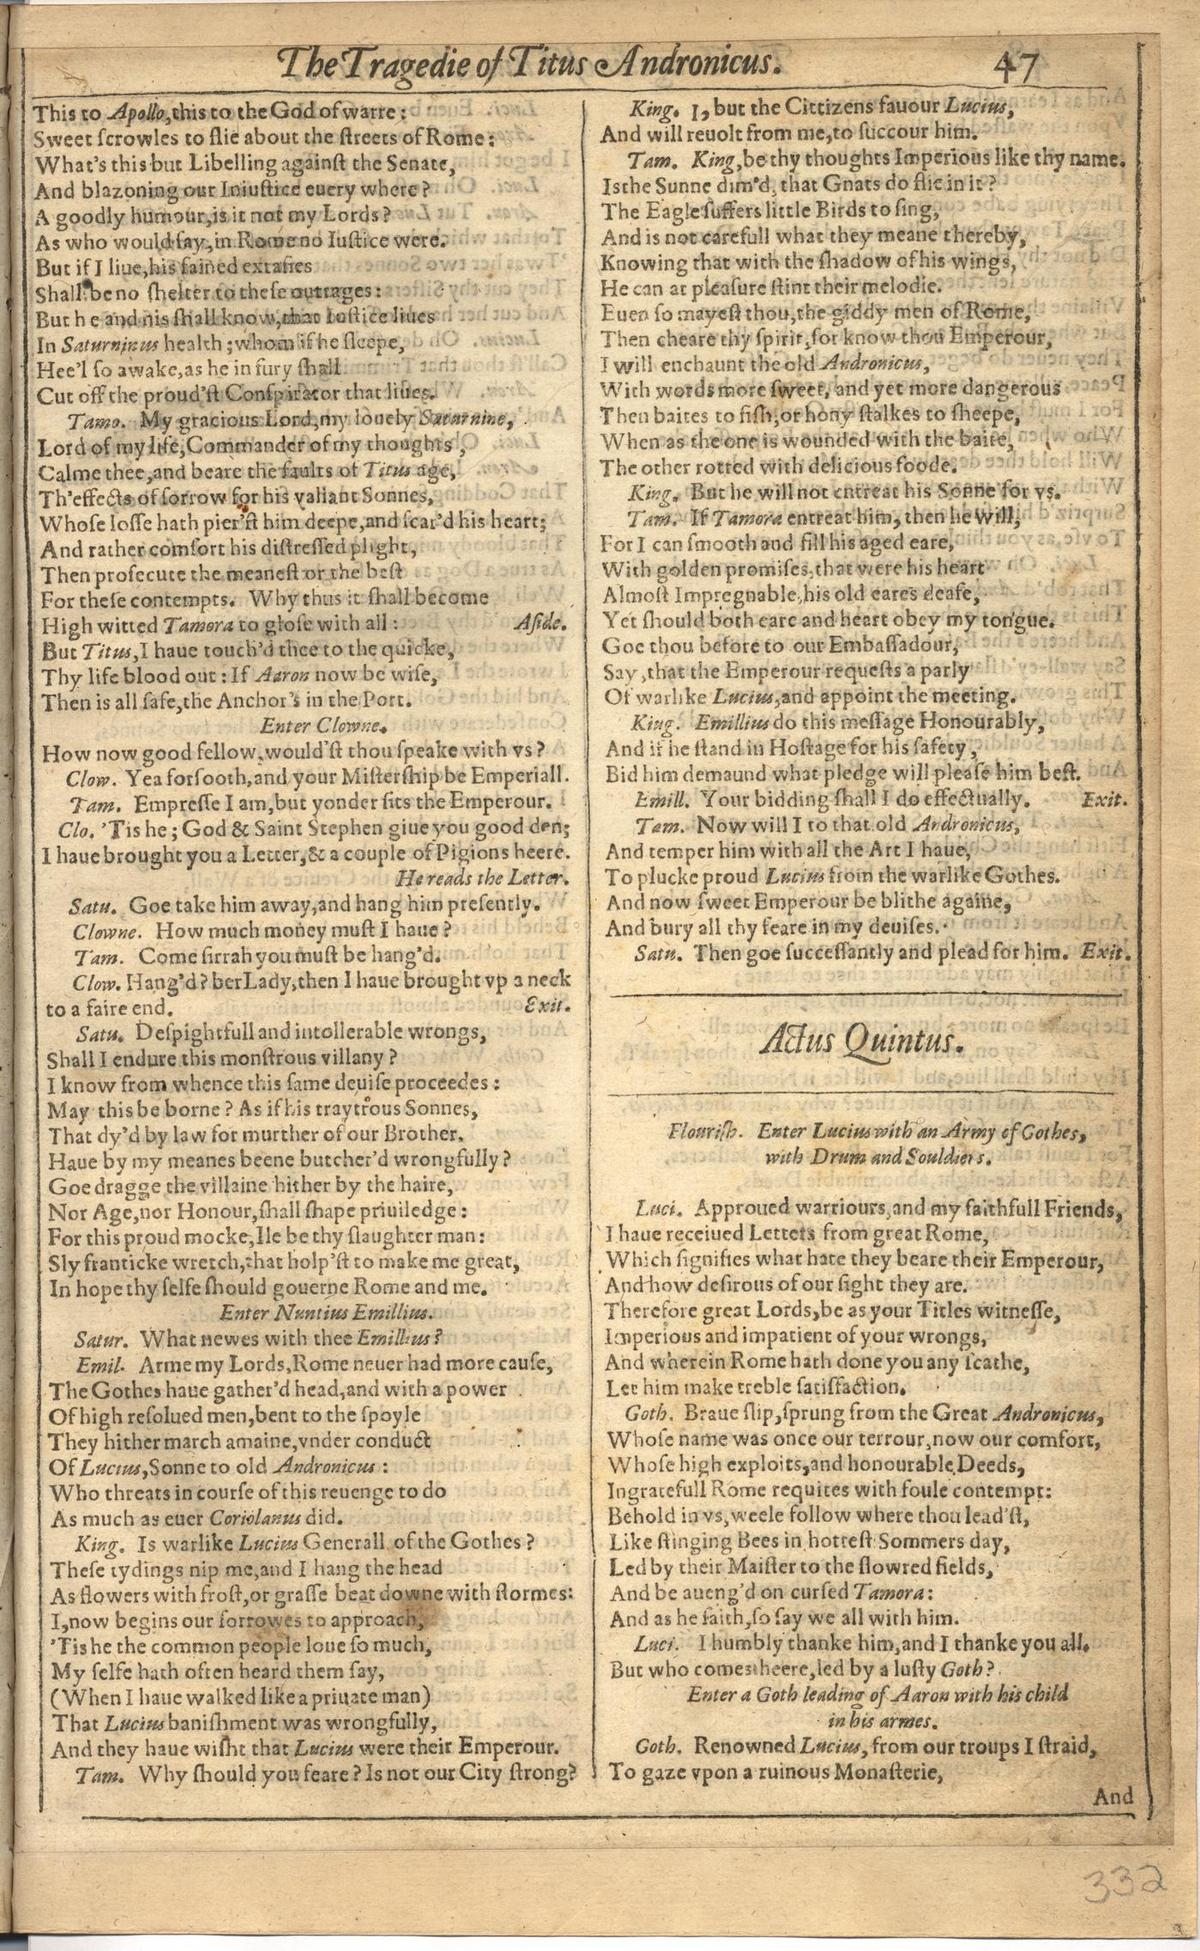 The Tragedie of Titus Andronicus. 47
This to Apollo, this to the God of warre:
Sweet scrowles to flie about the streets of Rome:
What's this but Libelling against the Senate,
And blazoning our Iniustice euery where?
A goodly humour, is it not my Lords?
As who would say, in Rome no Iustice were.
But if I liue, his fained extasies
Shall be no shelter to these outrages:
But he and his shall know, that Iustice liues
In Saturninus health; whom if he sleepe,
Hee'l so awake, as he in fury shall
Cut off the proud'st Conspirator that liues.
Tamo. My gracious Lord, my louely Saturnine,
Lord of my life, Commander of my thoughts,
Calme thee, and beare the faults of Titus age,
Th'effects of sorrow for his valiant Sonnes,
Whose losse hath pier'st him deepe, and scar'd his heart;
And rather comfort his distressed plight,
Then prosecute the meanest or the best
For these contempts. Why thus it shall become
High witted Tamora to glose with all: Aside.
But Titus, I haue touch'd thee to the quicke,
Thy life blood out: If Aaron now be wise,
Then is all safe, the Anchor's in the Port.
Enter Clowne.
How now good fellow, would'st thou speake with vs?
Clow. Yea forsooth, and your Mistership be Emperiall.
Tam. Empresse I am, but yonder sits the Emperour.
Clo. 'Tis he; God & Saint Stephen giue you good den;
I haue brought you a Letter, & a couple of Pigions heere.
He reads the Letter.
Satu. Goe take him away, and hang him presently.
Clowne. How much money must I haue?
Tam. Come sirrah you must be hang'd.
Clow. Hang'd? ber Lady, then I haue brought vp a neck
to a faire end. Exit.
Satu. Despightfull and intollerable wrongs,
Shall I endure this monstrous villany?
I know from whence this same deuise proceedes:
May this be borne? As if his traytrous Sonnes,
That dy'd by law for murther of our Brother,
Haue by my meanes beene butcher'd wrongfully?
Goe dragge the villaine hither by the haire,
Nor Age, nor Honour, shall shape priuiledge:
For this proud mocke, Ile be thy slaughter man:
Sly franticke wretch, that holp'st to make me great,
In hope thy selfe should gouerne Rome and me.
Enter Nuntius Emillius.
Satur. What newes with thee Emillius?
Emil. Arme my Lords, Rome neuer had more cause,
The Gothes haue gather'd head, and with a power
Of high resolued men, bent to the spoyle
They hither march amaine, vnder conduct
Of Lucius, Sonne to old Andronicus:
Who threats in course of this reuenge to do
As much as euer Coriolanus did.
King. Is warlike Lucius Generall of the Gothes?
These tydings nip me, and I hang the head
As flowers with frost, or grasse beat downe with stormes:
I, now begins our sorrowes to approach,
'Tis he the common people loue so much,
My selfe hath often heard them say,
(When I haue walked like a priuate man)
That Lucius banishment was wrongfully,
And they haue wisht that Lucius were their Emperour.
Tam. Why should you feare? Is not our City strong?
King. I, but the Cittizens fauour Lucius,
And will reuolt from me, to succour him.
Tam. King, be thy thoughts Imperious like thy name.
Is the Sunne dim'd, that Gnats do flie in it?
The Eagle suffers little Birds to sing,
And is not carefull what they meane thereby,
Knowing that with the shadow of his wings,
He can at pleasure stint their melodie.
Euen so mayest thou, the giddy men of Rome,
Then cheare thy spirit, for know thou Emperour,
I will enchaunt the old Andronicus,
With words more sweet, and yet more dangerous
Then baites to fish, or hony stalkes to sheepe,
When as the one is wounded with the baite,
The other rotted with delicious foode.
King. But he will not entreat his Sonne for vs.
Tam. If Tamora entreat him, then he will,
For I can smooth and fill his aged eare,
With golden promises, that were his heart
Almost Impregnable, his old eares deafe,
Yet should both eare and heart obey my tongue.
Goe thou before to our Embassadour,
Say, that the Emperour requests a parly
Of warlike Lucius, and appoint the meeting.
King. Emillius do this message Honourably,
And if he stand in Hostage for his safety,
Bid him demaund what pledge will please him best.
Emill. Your bidding shall I do effectually. Exit.
Tam. Now will I to that old Andronicus,
And temper him with all the Art I haue,
To plucke proud Lucius from the warlike Gothes.
And now sweet Emperour be blithe againe,
And bury all thy feare in my deuises.
Satu. Then goe successantly and plead for him. Exit.
Actus Quintus.
Flourish. Enter Lucius with an Army of Gothes,
with Drum and Souldiers.
Luci. Approued warriours, and my faithfull Friends,
I haue receiued Letters from great Rome,
Which signifies what hate they beare their Emperour,
And how desirous of our sight they are.
Therefore great Lords, be as your Titles witnesse,
Imperious and impatient of your wrongs,
And wherein Rome hath done you any scathe,
Let him make treble satisfaction.
Goth. Braue slip, sprung from the Great Andronicus,
Whose name was once our terrour, now our comfort,
Whose high exploits, and honourable Deeds,
Ingratefull Rome requites with foule contempt:
Behold in vs, weele follow where thou lead'st,
Like stinging Bees in hottest Sommers day,
Led by their Maister to the flowred fields,
And be aueng'd on cursed Tamora:
And as he saith, so say we all with him.
Luci. I humbly thanke him, and I thanke you all.
But who comes heere, led by a lusty Goth?
Enter a Goth leading of Aaron with his child
in his armes.
Goth. Renowned Lucius, from our troups I straid,
To gaze vpon a ruinous Monasterie,
And
332